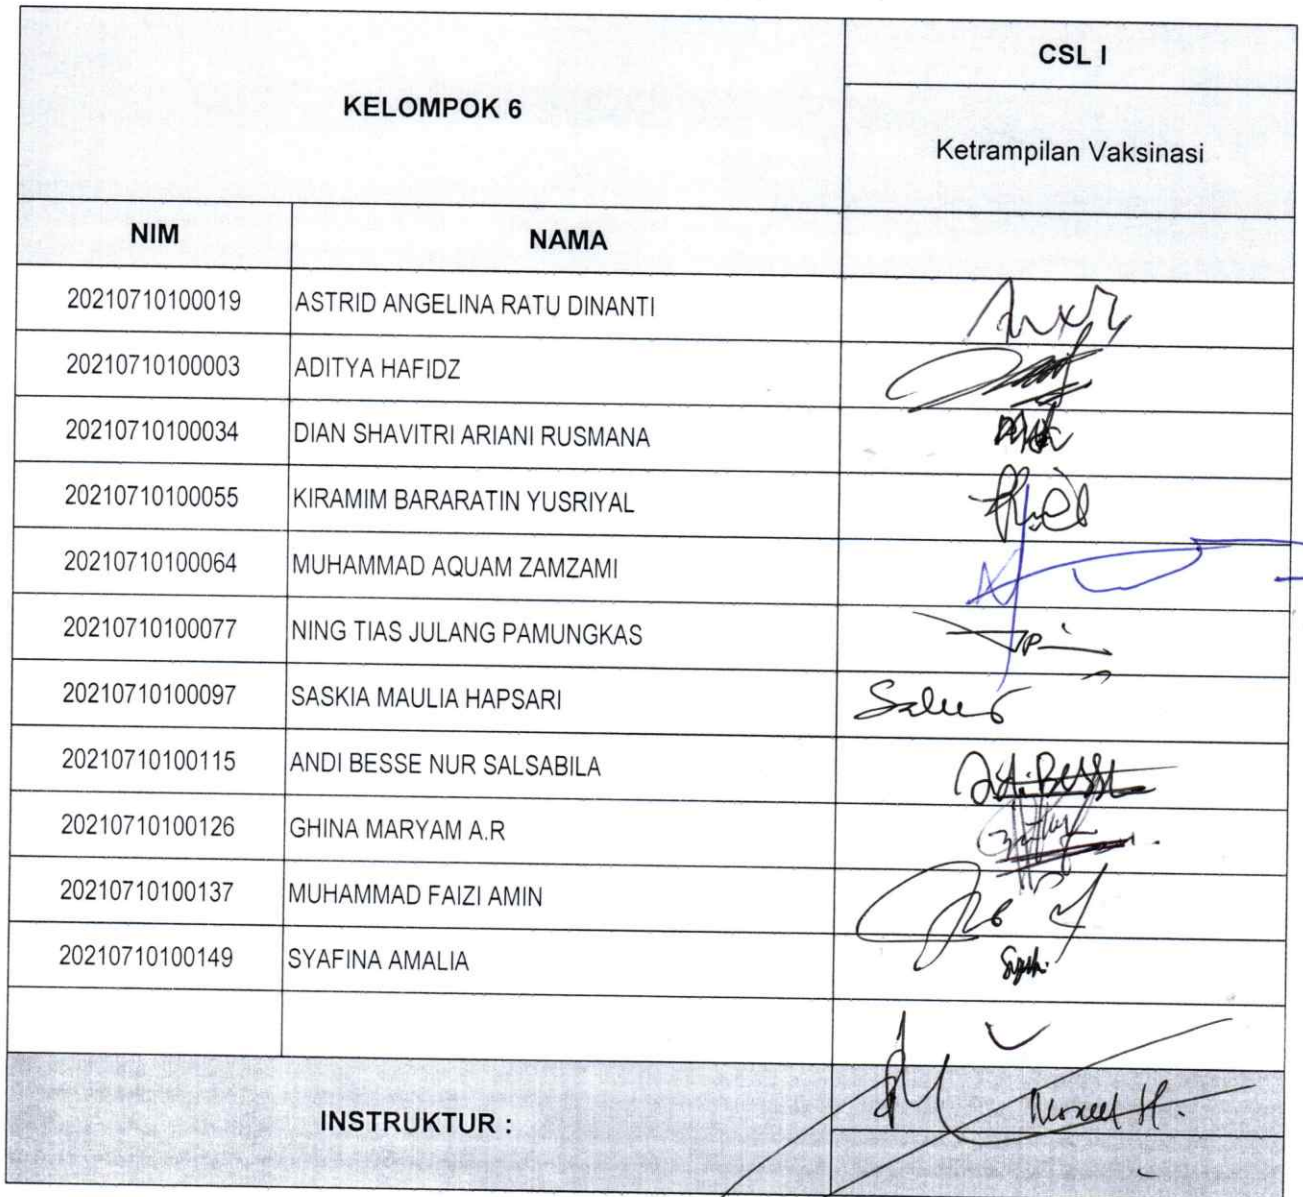 CSL I
KELOMPOK 6
Ketrampilan Vaksinasi
NIM NAMA
20210710100019 ASTRID ANGELINA RATU DINANTI
20210710100003 ADITYA HAFIDZ
20210710100034 DIAN SHAVITRI ARIANI RUSMANA
20210710100055 KIRAMIM BARARATIN YUSRIYAL
20210710100064 MUHAMMAD AQUAM ZAMZAMI
20210710100077 NING TIAS JULANG PAMUNGKAS
20210710100097 SASKIA MAULIA HAPSARI
20210710100115 ANDI BESSE NUR SALSABILA
20210710100126 GHINA MARYAM A.R
20210710100137 MUHAMMAD FAIZI AMIN
20210710100149 SYAFINA AMALIA
INSTRUKTUR :